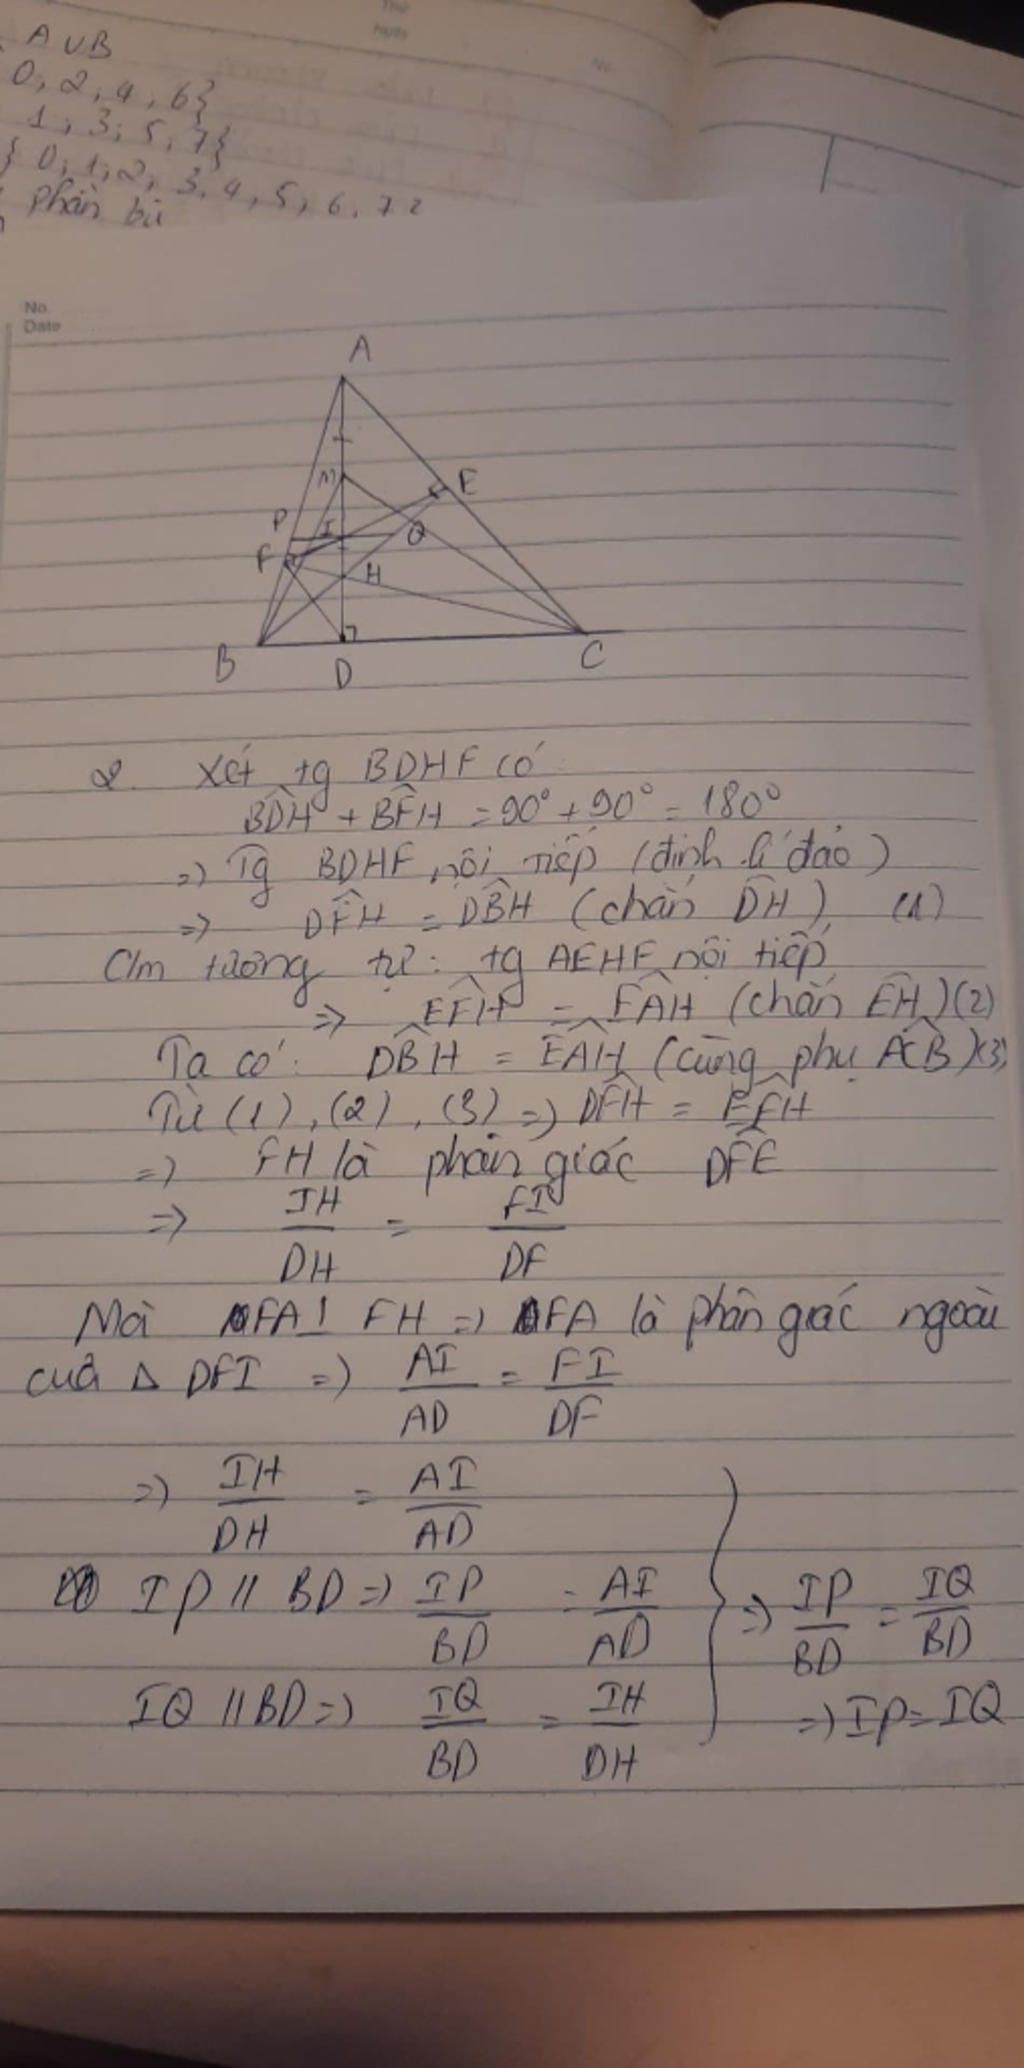 A ∪ B
0; 2; 4; 6}
1; 3; 5; 7}
{ 0; 1; 2; 3; 4; 5; 6; 7 }
phần bù
No.
Date
A
M
E
P
I
Q
F
H
B
D
C
2. Xét tg BDHF có:
BDĤ + BFĤ = 90° + 90° = 180°
=> Tg BDHF nội tiếp (định lí đảo)
=> DFĤ = DBĤ (chắn DH) (1)
C/m tương tự: tg AEHF nội tiếp
=> EFĤ = EAĤ (chắn EH) (2)
Ta có: DBĤ = EAĤ (cùng phụ ACB̂) (3)
Từ (1), (2), (3) => DFĤ = EFĤ
=> FH là phân giác DFE
=> IH/DH = FI/DF
Mà FA ⊥ FH => FA là phân giác ngoài
của Δ DFI => AI/AD = FI/DF
=> IH/DH = AI/AD
IP // BD => IP/BD = AI/AD => IP/BD = IQ/BD
IQ // BD => IQ/BD = IH/DH => IP = IQ